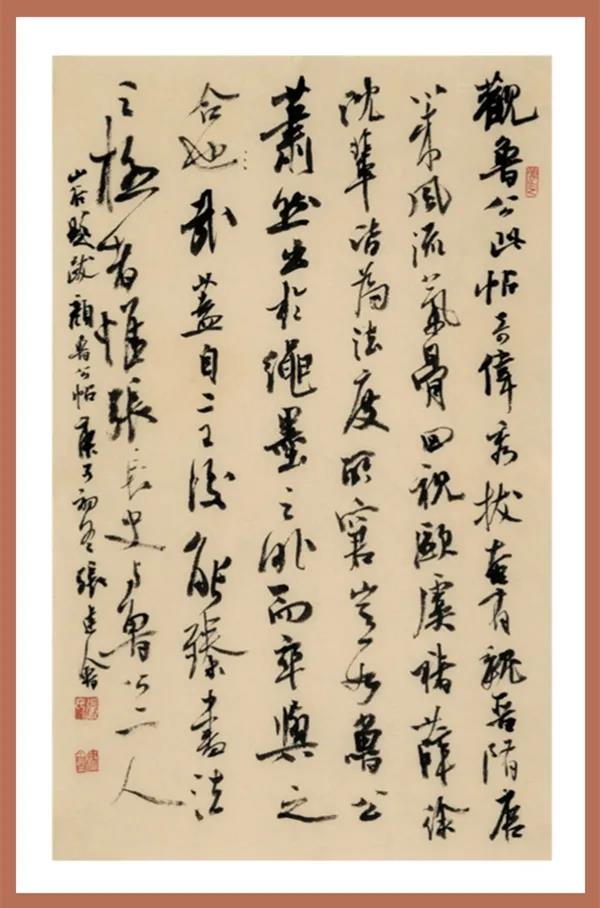 觀魯公此帖奇偉秀拔奄有魏晉隋唐
以來風流氣骨回視歐虞褚薛徐
沈輩皆為法度所窘豈如魯公
蕭然出於繩墨之外而卒與之
合也哉蓋自二王後能臻書法
之極者惟張長史與魯公二人
山谷題跋顏魯公帖庚子初冬張